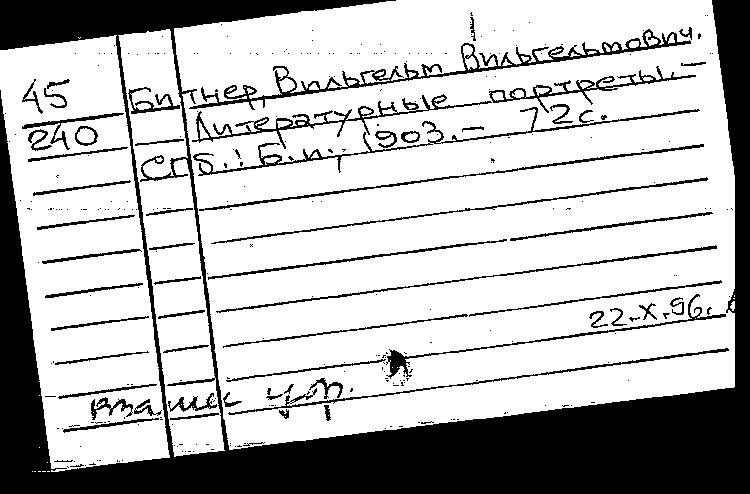 45 Битнер, Вильгельм Вильгельмович.
240 Литературные портреты. —
СПб.: Б.и., 1903. — 72с.
22.X.96.
взамен утр.